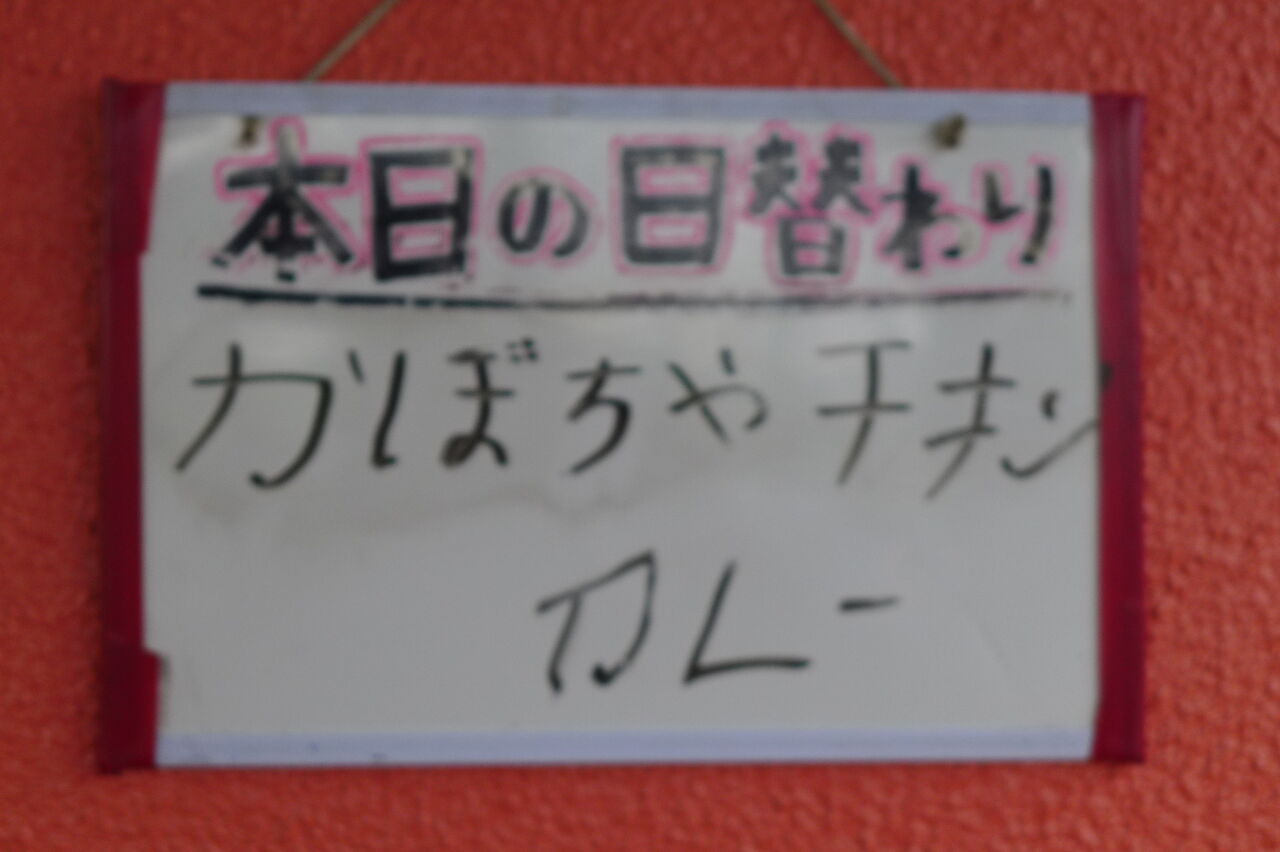 本日の日替わり
かぼちゃチキン
カレー